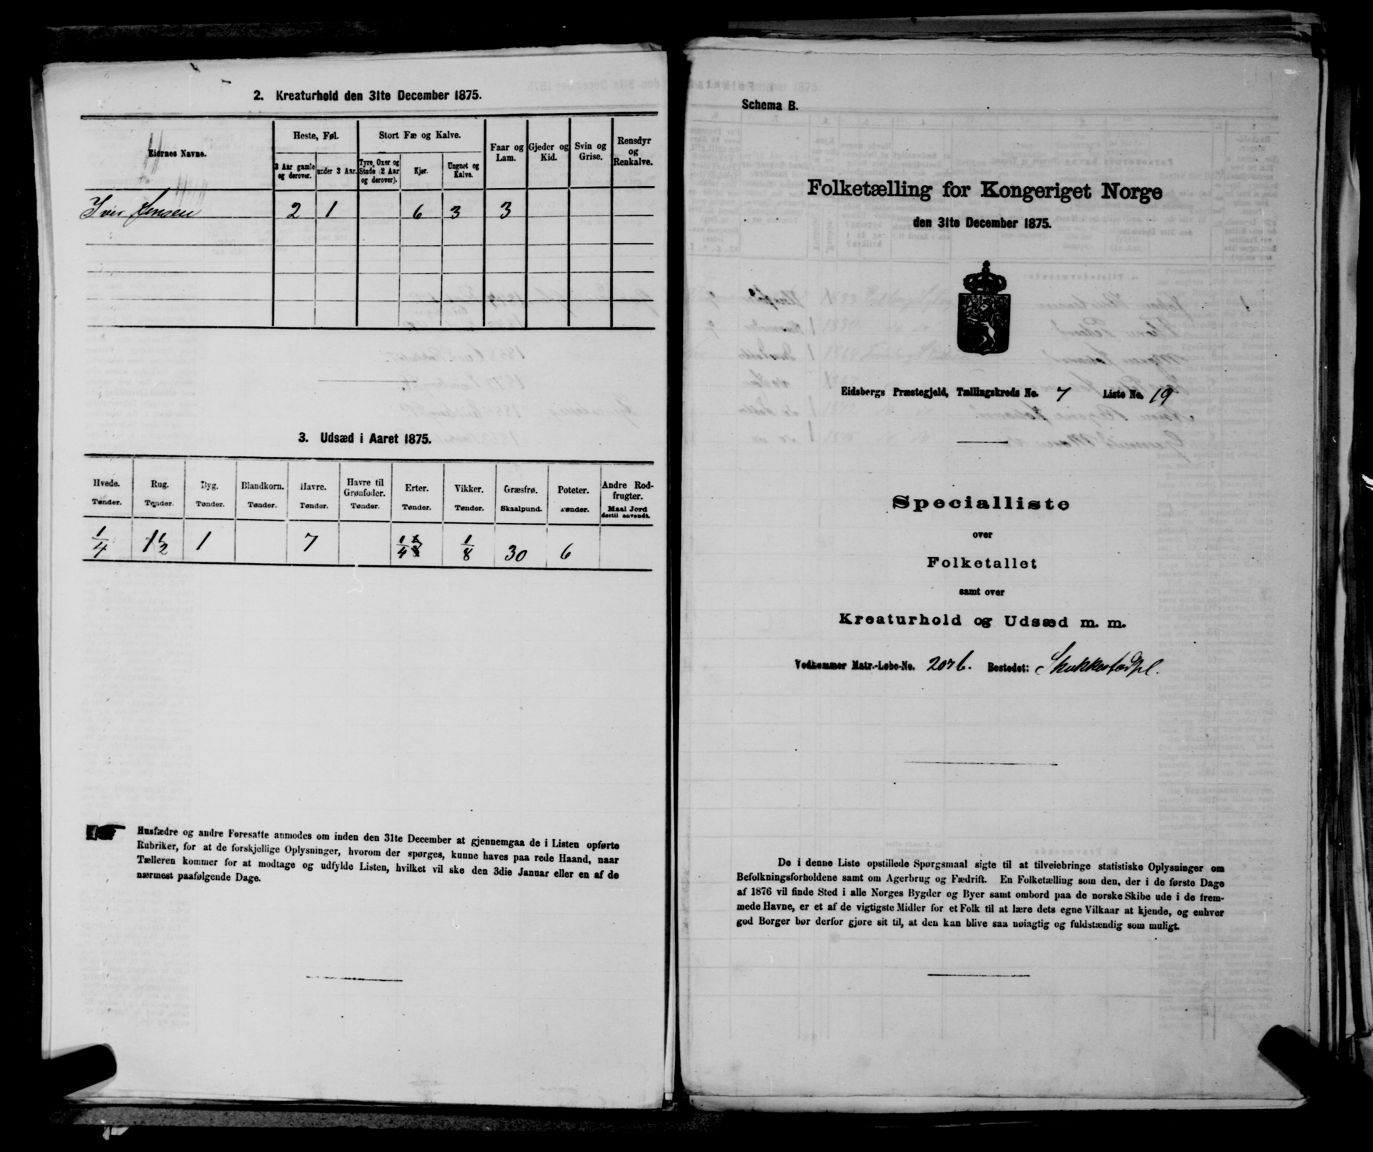 2. Kreaturhold den 31te December 1875.
Eiernes Navne.
Heste, Føl.
Stort Fæ og Kalve.
Faar og Lam.
Gjeder og Kid.
Svin og Grise.
Rensdyr og Renkalve.
3 Aar gamle og derover.
under 3 Aar.
Tyre, Oxer og Stude (2 Aar og derover).
Kjør.
Ungnet og Kalve.
Iver Jensen 2 1 6 3 3
3. Udsæd i Aaret 1875.
Hvede. Rug. Byg. Blandkorn. Havre. Havre til Grønfoder. Erter. Vikker. Græsfrø. Poteter. Andre Rodfrugter.
Tønder. Tønder. Tønder. Tønder. Tønder. Tønder. Tønder. Tønder. Skaalpund. Tønder. Maal Jord dertil anvendt.
1/4 1 1/2 1 7 1/4 1/8 30 6
Husfædre og andre Foresatte anmodes om inden den 31te December at gjennemgaa de i Listen opførte
Rubriker, for at de forskjellige Oplysninger, hvorom der spørges, kunne haves paa rede Haand, naar
Tælleren kommer for at modtage og udfylde Listen, hvilket vil ske den 3die Januar eller en af de
nærmest paafølgende Dage.
Schema B.
Folketælling for Kongeriget Norge
den 31te December 1875.
Eidsbergs Præstegjeld, Tællingskreds No. 7 Liste No. 19
Specialliste
over
Folketallet
samt over
Kreaturhold og Udsæd m. m.
Vedkommer Matr.-Løbe-No. 207b. Bostedet:
De i denne Liste opstillede Spørgsmaal sigte til at tilveiebringe statistiske Oplysninger om
Befolkningsforholdene samt om Agerbrug og Fædrift. En Folketælling som den, der i de første Dage
af 1876 vil finde Sted i alle Norges Bygder og Byer samt ombord paa de norske Skibe ude i de frem-
mede Havne, er et af de vigtigste Midler for et Folk til at lære dets egne Vilkaar at kjende, og enhver
god Borger bør derfor gjøre sit til, at den kan blive saa nøiagtig og fuldstændig som muligt.